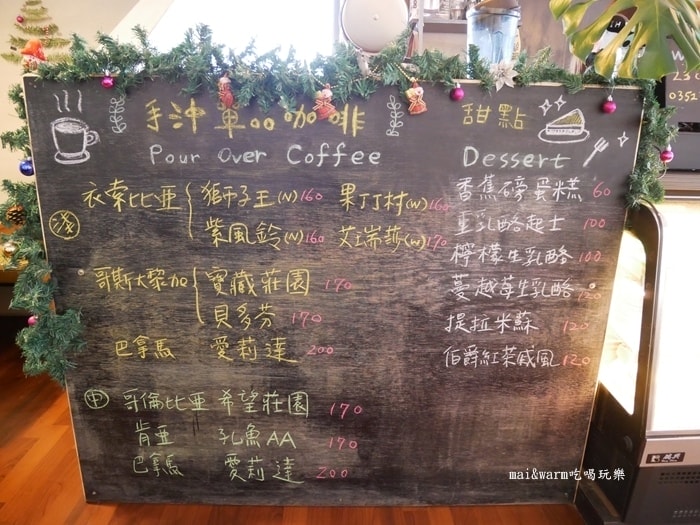 手沖單品咖啡
Pour Over Coffee
衣索比亞
獅子王(N)160 果丁丁村(W)160
淺
紫風鈴(N)160 艾瑞莎(W)170
哥斯大黎加 寶藏莊園 170
貝多芬 170
巴拿馬 愛莉達 200
中 哥倫比亞 希望莊園 170
肯亞 孔魚AA 170
巴拿馬 愛莉達 200
甜點
Dessert
香蕉磅蛋糕 60
重乳酪起士 100
檸檬生乳酪 100
蔓越莓生乳酪 120
提拉米蘇 120
伯爵紅茶戚風 120
0351
mai&warm吃喝玩樂